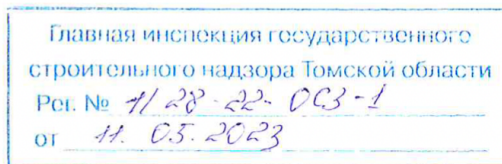 Главная инспекция государственного
строительного надзора Томской области
Рег. № 1/28-22-ОСЗ-1
от 11. 05. 2023